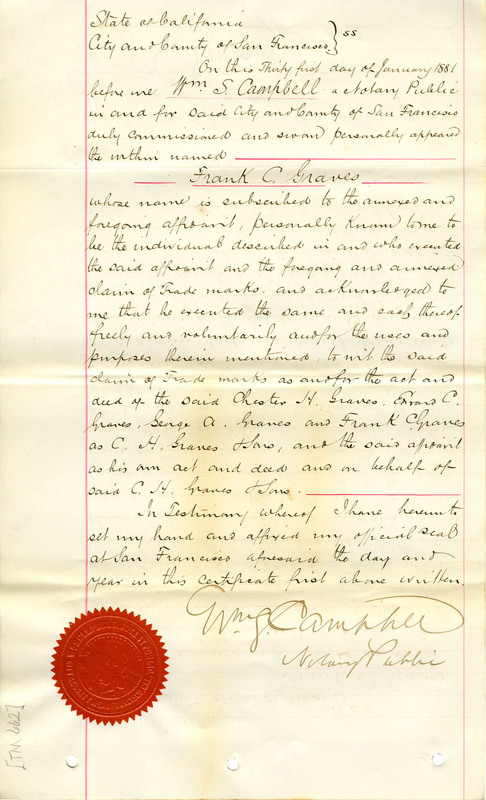 State of California
City and County of San Francisco } ss
On this Thirty first day of January 1881
before me Wm S. Campbell a Notary Public
in and for said City and County of San Francisco
duly commissioned and sworn personally appeared
the within named
Frank C. Graves
whose name is subscribed to the annexed and
foregoing affidavit, personally known to me to
be the individual described in and who executed
the said affidavit and the foregoing and annexed
claim of Trade marks. and acknowledged to
me that he executed the same and each thereof
freely and voluntarily and for the uses and
purposes therein mentioned, to wit the said
claim of Trade marks as and for the act and
deed of the said Chester H. Graves, C.
Graves, George A. Graves and Frank C. Graves
as C. H. Graves & Sons, and the said affidavit
as his own act and deed and on behalf of
said C. H. Graves & Sons.
In Testimony whereof I have hereunto
set my hand and affixed my official seal
at San Francisco aforesaid the day and
year in this certificate first above written.
Wm S. Campbell
Notary Public
[TM 662]